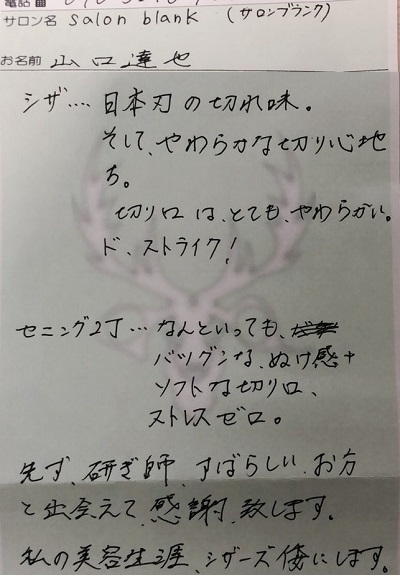 電話番
サロン名 salon blank (サロンブランク)
お名前 山口達也
シザ‥‥日本刃の切れ味。
そして、やわらかな切り心地
ち。
切り口は、とても、やわらかい。
ド、ストライク!
セニング2丁…なんといっても、
バツグンな、ぬけ感+
ソフトな切り口、
ストレスゼロ。
先ず、研ぎ師、すばらしい、お方
と出会えて、感謝、致します。
私の美容生涯、シザーズ倭にします。